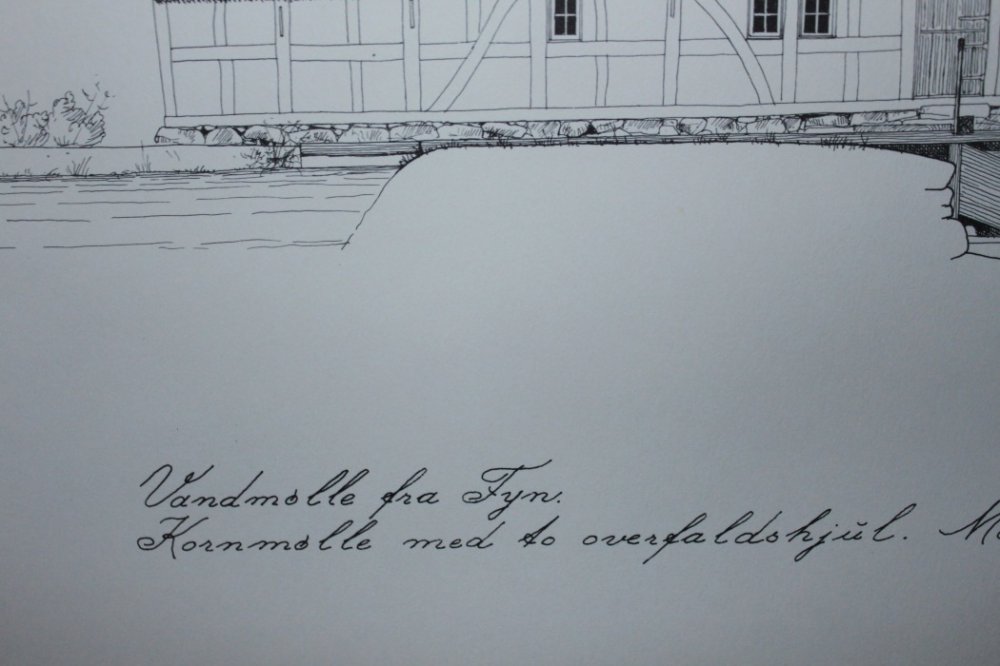 Vandmølle fra Fyn.
Kornmølle med to overfaldshjul.